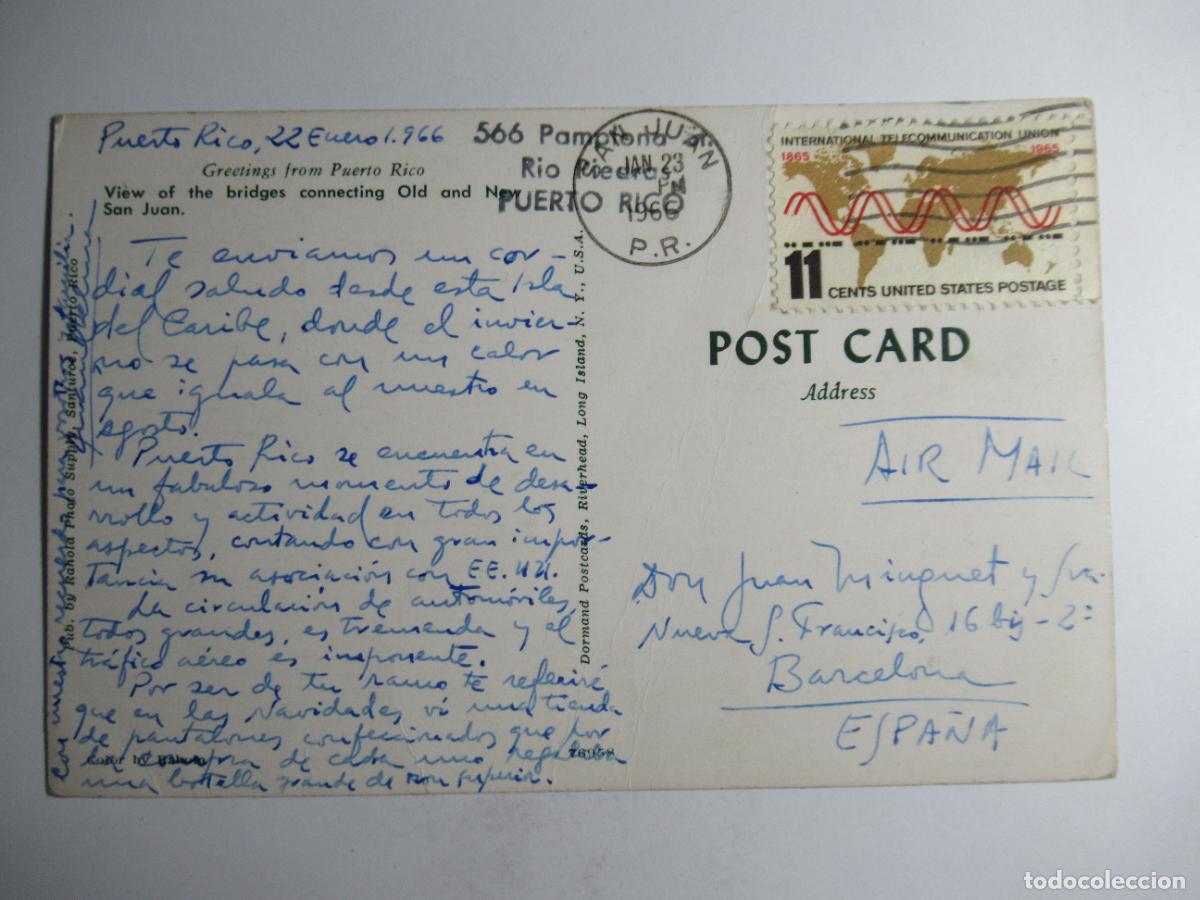 Puerto Rico, 22 Enero 1.966
Greetings from Puerto Rico
View of the bridges connecting Old and New
San Juan.
Te enviamos un cor-
dial saludo desde esta Isla
del Caribe, donde el invier-
no se pasa con un calor
que iguala al nuestro en
agosto.
Puerto Rico se encuentra en
un fabuloso momento de desa-
rrollo y actividad en todos los
aspectos, contando con gran impor-
tancia su asociación con EE.UU.
La circulación de automóviles,
todos grandes, es tremenda y el
tráfico aéreo es imponente.
Por ser de tu ramo te referiré
que en las Navidades vi una tienda
de pantalones confeccionados que por
la compra de cada uno regalaba
una botella grande de ron superior.
Color by Rahola
76958
Con nuestros recuerdos para vuestra familia
Pub. by Rahola Photo Supply, Santurce, Puerto Rico
Dormand Postcards, Riverhead, Long Island, N. Y., U.S.A.
566 Pamplona St.
Rio Piedras
PUERTO RICO
SAN JUAN
JAN 23
PM
1966
P.R.
INTERNATIONAL TELECOMMUNICATION UNION
1865 1965
11 CENTS UNITED STATES POSTAGE
POST CARD
Address
AIR MAIL
Don Juan Minguet y Sra.
Nueva S. Francisco, 16 bis - 2º
Barcelona
ESPAÑA
todocoleccion